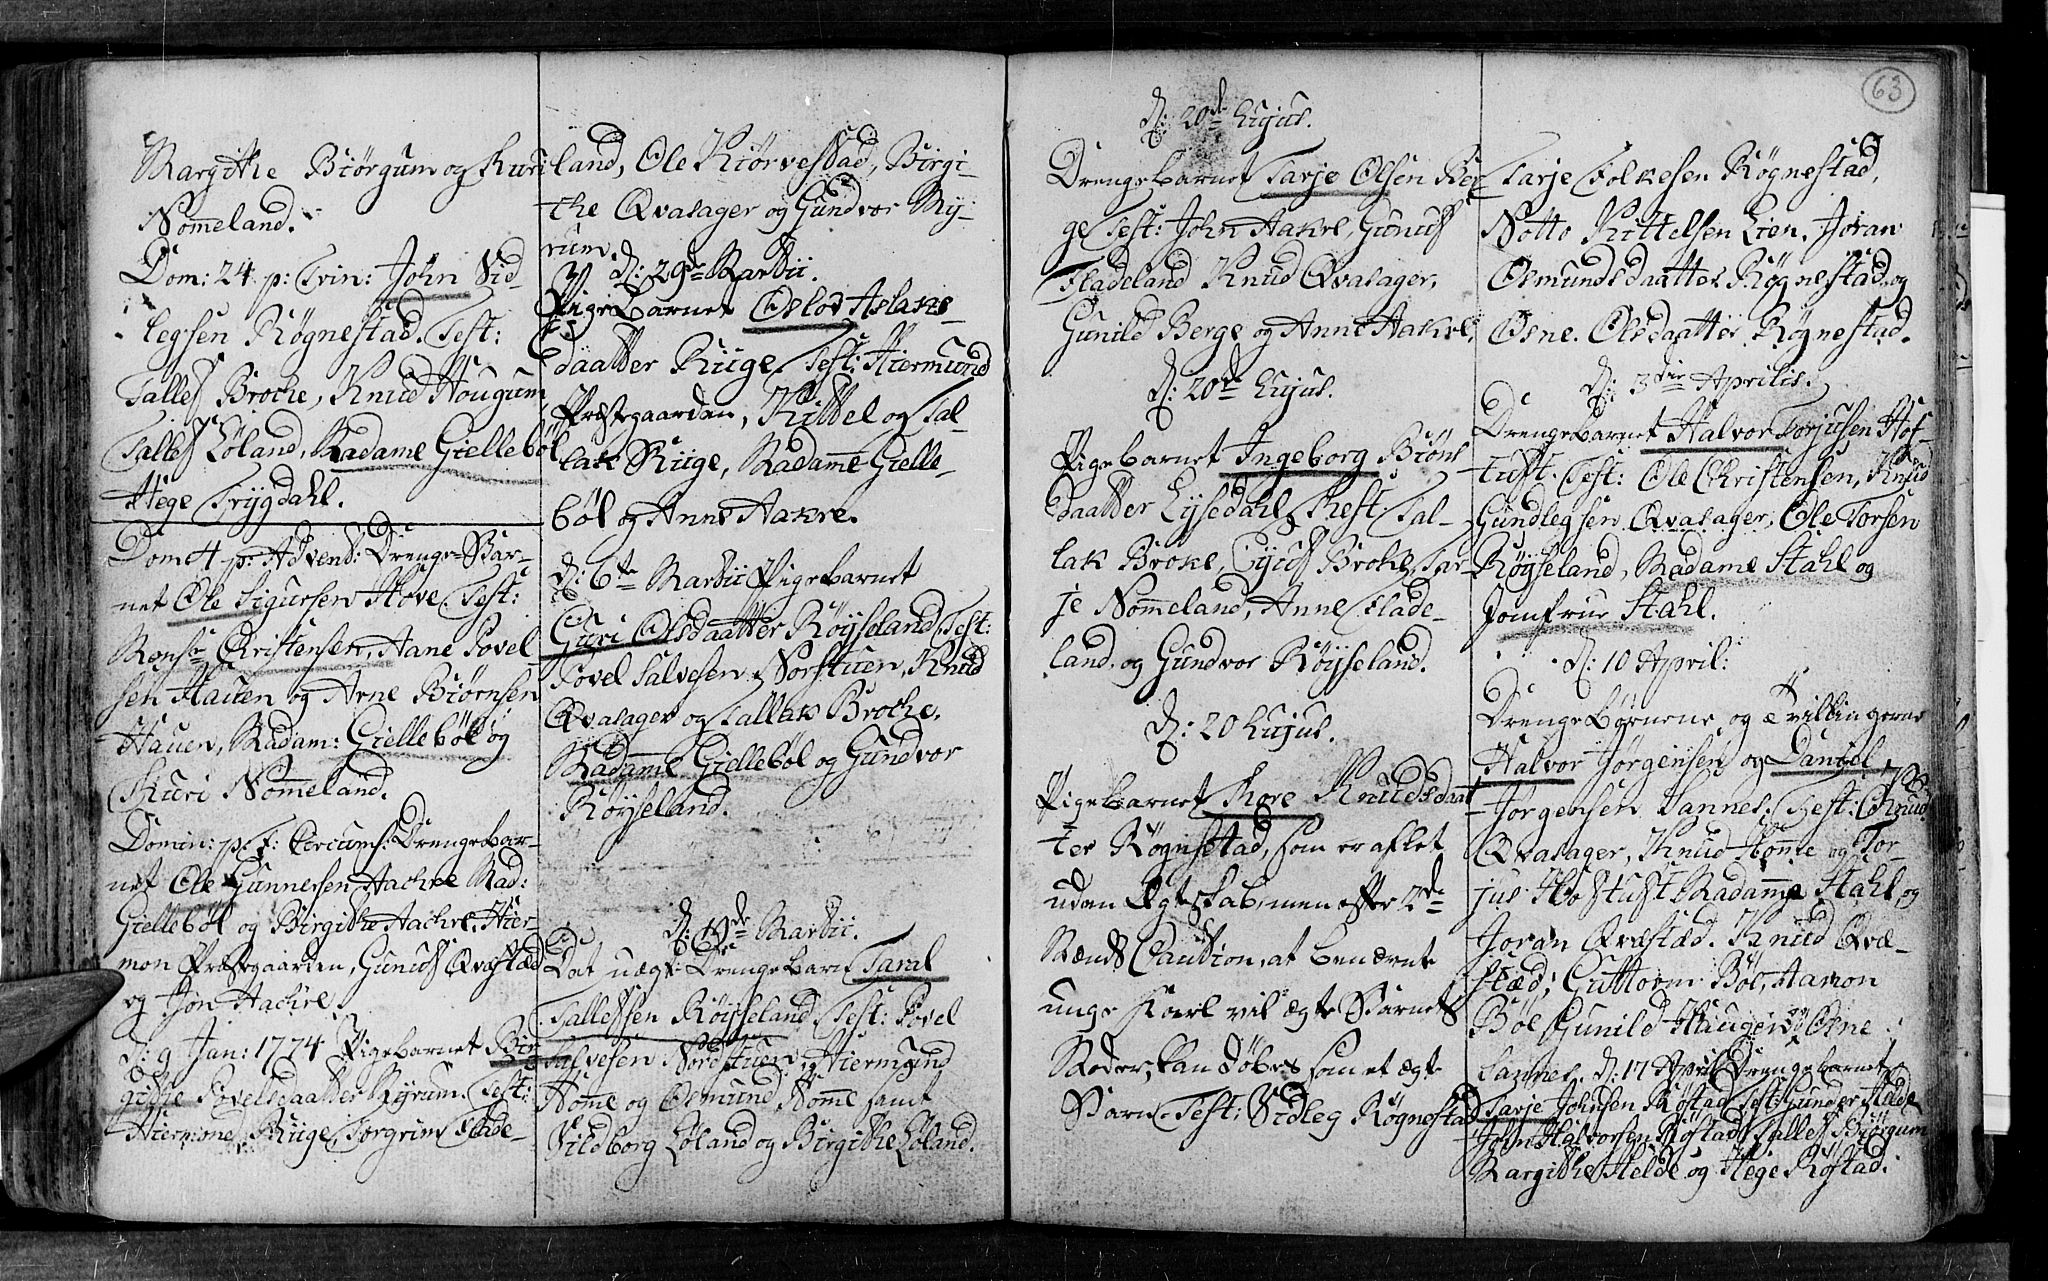 Margithe Biörgum og Kuri
Nom̄eland.
Dom: 24 p: Trin: John Vid-
legsen Røgnestad. Test:
Talles Broche, Knud Hougum,
Talles Löland, Madame Giellebøl
Hege Trygdahl.
Dom 4 p: Advent: Drenge-Bar-
net Ole Sigursen Hove. Test:
Monsr Christensen, Hane Povel
sen Hauen og Arne Biørnsen
Hauen, Madam: Giellebøl og
Kuri Nom̄eland.
Domin: p: f: Circums: Drengebar-
net Ole Gunnersen Aachre Mad:
Giellebøl og Birgithe Aachre, Hier-
mon Præstegaarden, Gunulf Qvæstæd
og Jon Aachre.
d: 9 Jan: 1774 Pigebarnet Bir-
githe Povelsdaatter Myrum. Test:
Hiermone Riige, Torgrim Flade-
land, Ole Kiörvestad, Birgi-
the Qvasager og Gundvor My-
rum.
d: 29de Martii.
Pigebarnet Oslov Aslaks-
daatter Riige. Test: Hiermund
Præstegaarden, Kittel og Tal-
lak Riige, Madame Gielle-
bøl og Anne Aakre.
d: 6te Martii Pigebarnet
Guri Olsdaatter Röyseland. Test:
Povel Salvesen Norstuen, Knud
Qvasager og Tallak Broche,
Madame Giellebøl og Gundvor
Röyseland.
d: 19de Martii.
Det uægte Drengebarn Taral
Tallessen Röyseland. Test: Povel
Salvesen Nordstuen, Hiermund
Hom̄e og Osmund Hom̄e samt
Vildborg Löland og Birgithe Löland.
63
d: 20de hujus.
Drengebarnet Tarje Olsen Ber-
ge Test: John Aakre, Gunulf
Fladeland Knud Qvasager,
Gunild Berge og Anne Aakre.
d: 20de hujus.
Pigebarnet Ingeborg Biörns
daatter Lysedahl. Test: Tal-
lak Broke, Eyulf Broke, Tar-
je Nom̄eland, Anne Flade-
land og Gundvor Röyseland.
d: 20 hujus.
Pigebarnet Thore Knudsdaat
ter Røgnestad, som er aflet
uden Ægteskab, men efter 2de
Mænds Caution, at benævnte
unge Karl vil ægte Barnets
Moder, kan döbes som et ægte
Barn. Test: Vidleg Røgnestad
Tarje Folkesen Røgnestad,
Notto Kittelsen Lien, Joran
Osmundsdaatter Røgnestad og
Osne Olsdaatter Røgnestad.
d: 3die Aprilis.
Drengebarnet Halvor Torjusen Hof-
tuft. Test: Ole Christensen, Knud
Gundlegsen Qvasager, Ole Torsen
Röyseland, Madame Stahl og
Jomfrue Stahl.
d: 10 April:
Drengebørnene og Tvillingerne
Halvor Jörgensen og Daniel
Jörgensen Sannes. Test: Knud
Qvasager, Knud Hom̄e og Tor-
jus Hoftuft Madam̄e Stahl, og
Joran Qvæstæd. Knud Qvæ-
stæd, Guttorm Böl, Aamon
Böl Gunild Haugen og Osne
Sannes. d: 17 April Drengebarnet
Tarje Johnsen Røstad Test: Gunder Helde
John Halvorsen Røstad Talles Biörgum
Margithe Helde og Hege Røstad.